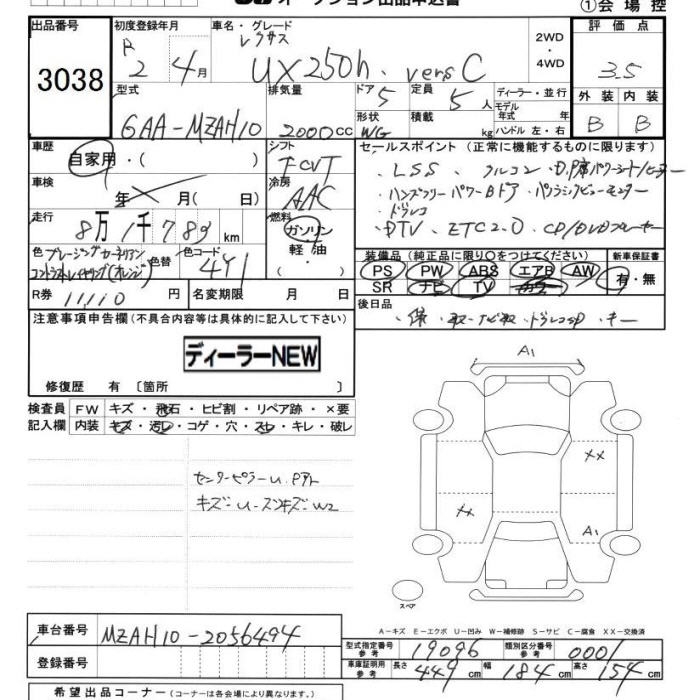 オークション出品申込書
①会 場 控
出品番号
3038
初度登録年月
R 2 4月
車名・グレード
レクサス
UX250h. versC
2WD
・
4WD
評 価 点
3.5
外 装 内 装
B B
型式
6AA-MZAH10
排気量
2000cc
ドア 5
定員 5人
ディーラー・並行
モデル
年式 年
形状 WG
積載 kg
ハンドル 左・右
車歴
自家用・( )
シフト
FCVT
車検
年 月( 日)
冷房
AAC
走行
8万1千789km
燃料
ガソリン
軽 油
( )
色 ブレージングカーネリアン
コントラストレイヤリング(オレンジ)
色替
色コード
4Y1
R券 11,110 円
名変期限 月 日
セールスポイント (正常に機能するものに限ります)
・LSS ・クルコン ・D,P席パワーシート/ヒーター
・ハンズフリーパワーBドア ・パノラミックビューモニター
・ドラレコ
・DTV ・ETC2.0 ・CD/DVDプレーヤー
装備品 (純正品に限り○をつけてください)
PS PW ABS エアB AW
SR ナビ TV カワ
新車保証書
有・無
後日品
・保 ・取 ・ナビ取 ・ドラレコSD ・キー
注意事項申告欄(不具合内容等は具体的に記入して下さい)
ディーラーNEW
修復歴 有 〔箇所 〕
検査員
記入欄
FW キズ・飛石・ヒビ割・リペア跡・×要
内装 キズ・汚レ・コゲ・穴・スレ・キレ・破レ
センターピラーU.Pアト
キズ・U-スジキズ・W2
A1
××
××
A1
スペア
A-キズ E-エクボ U-凹み W-補修跡 S-サビ C-腐食 XX-交換済
車台番号
MZAH10-2056494
登録番号
型式指定番号
参考
19096
類別区分番号
参考
0001
車庫証明用
参考
長さ 449cm 幅 184cm 高さ 154cm
希望出品コーナー(コーナーは各会場により異なります。)